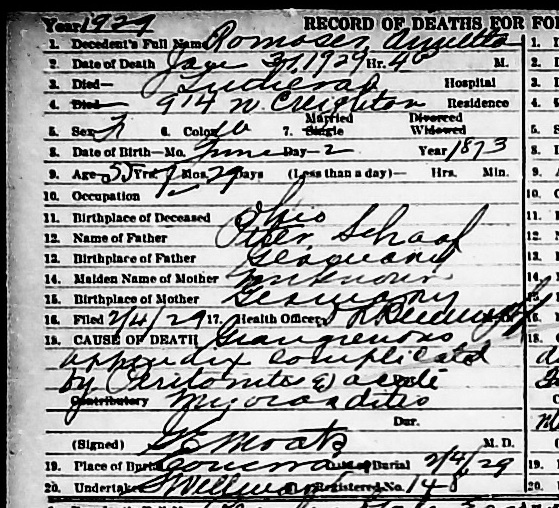 Year 1929 RECORD OF DEATHS FOR FOR
1. Decedent's Full Name Romoser,
2. Date of Death Jan 31, 1929 Hr. M.
3. Died— Lutheran Hospital
4. Died— 914 N. Creighton Residence
5. Sex F 6. Color W 7. Married Single Divorced Widowed
8. Date of Birth—Mo. June Day— 2 Year 1873
9. Age— 55 Yrs. 7 Mos. 29 Days (Less than a day)— Hrs. Min.
10. Occupation
11. Birthplace of Deceased Ohio
12. Name of Father Peter Schaaf
13. Birthplace of Father Germany
14. Maiden Name of Mother Unknown
15. Birthplace of Mother Germany
16. Filed 2/4/29 17. Health Officer
18. CAUSE OF DEATH Grangrenous
appendix complicated
by Peritonitis & acute
Contributory Myocarditis
Dur.
(Signed) G E Moats M. D.
19. Place of Burial Date of Burial 2/4/29
20. Undertaker Registered No. 148